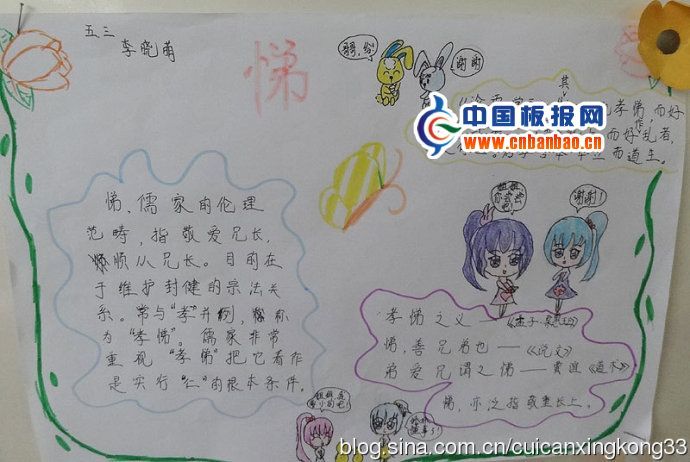 五三
李晓萌
悌
谢谢
其
孝悌,而好
中国板报网
www.cnbanbao.cn
作
而好乱者,
而道生。
悌,儒家的伦理
范畴,指敬爱兄长,
顺从兄长。目的在
于维护封健的宗法关
系。常与“孝”并例,称
为“孝悌”。儒家非常
重视“孝悌”把它看作
是实行“仁”的根本条件。
谢谢!
孝悌之义——《孟子·梁惠王》
悌,善兄弟也——《说文》
弟爱兄谓之悌——贾谊《道术》
悌,亦泛指敬重长上。
blog.sina.com.cn/cuicanxingkong33